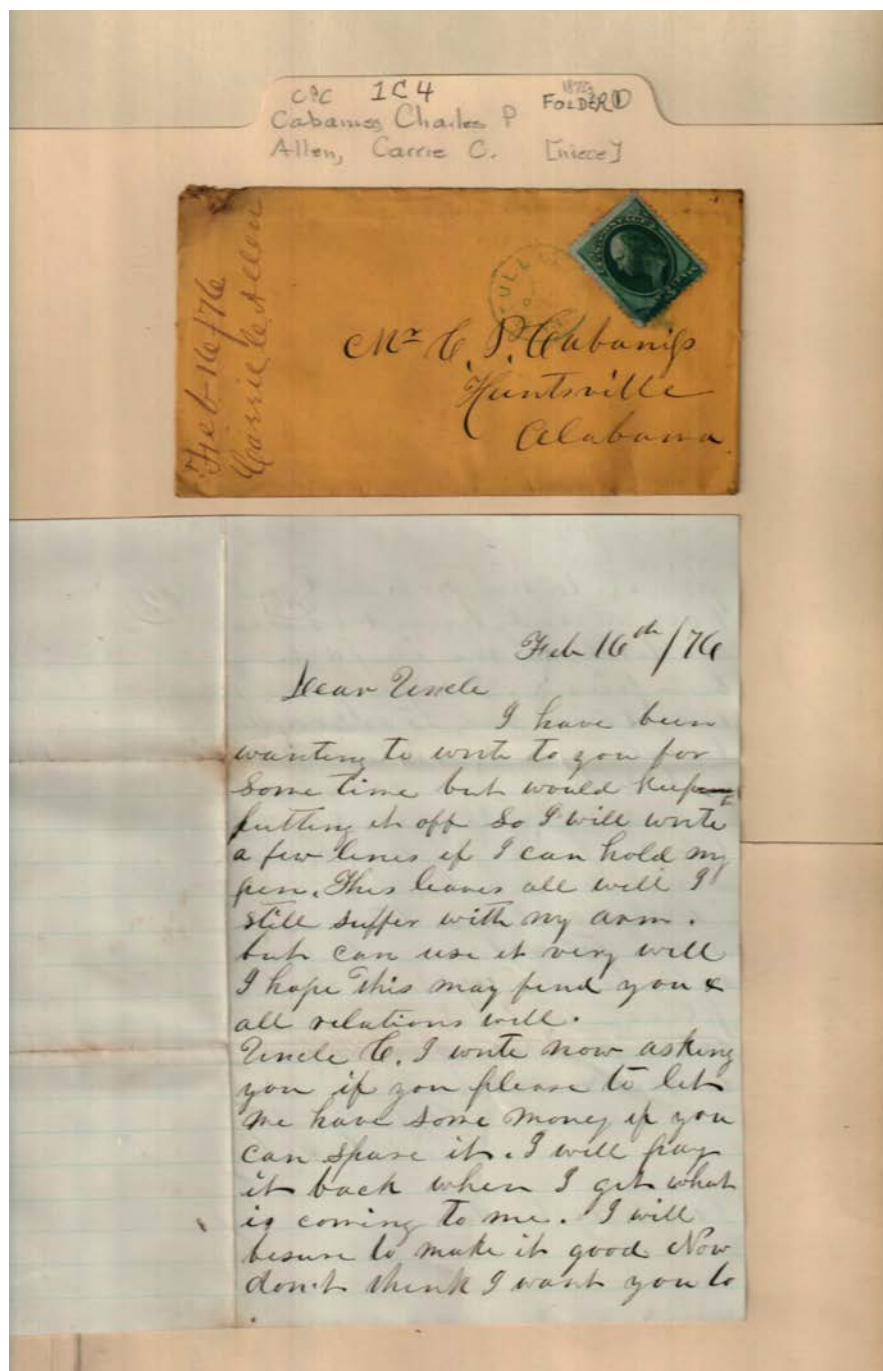 CPC 1C4 1870s FOLDER 1
Cabaniss Charles P
Allen, Carrie C. [niece]
Feb 16/76
Carrie C Allen
Mr C. P. Cabaniss
Huntsville
Alabama
Feb 16th/76
Dear Uncle
I have been
wanting to write to you for
some time but would keep
putting it off So I will write
a few lines if I can hold my
pen. This leaves all well I
still suffer with my arm.
but can use it very well
I hope this may find you &
all relations well.
Uncle C. I write now asking
you if you please to let
me have some money if you
can spare it. I will pay
it back when I get what
is coming to me. I will
besure to make it good Now
don't think I want you to